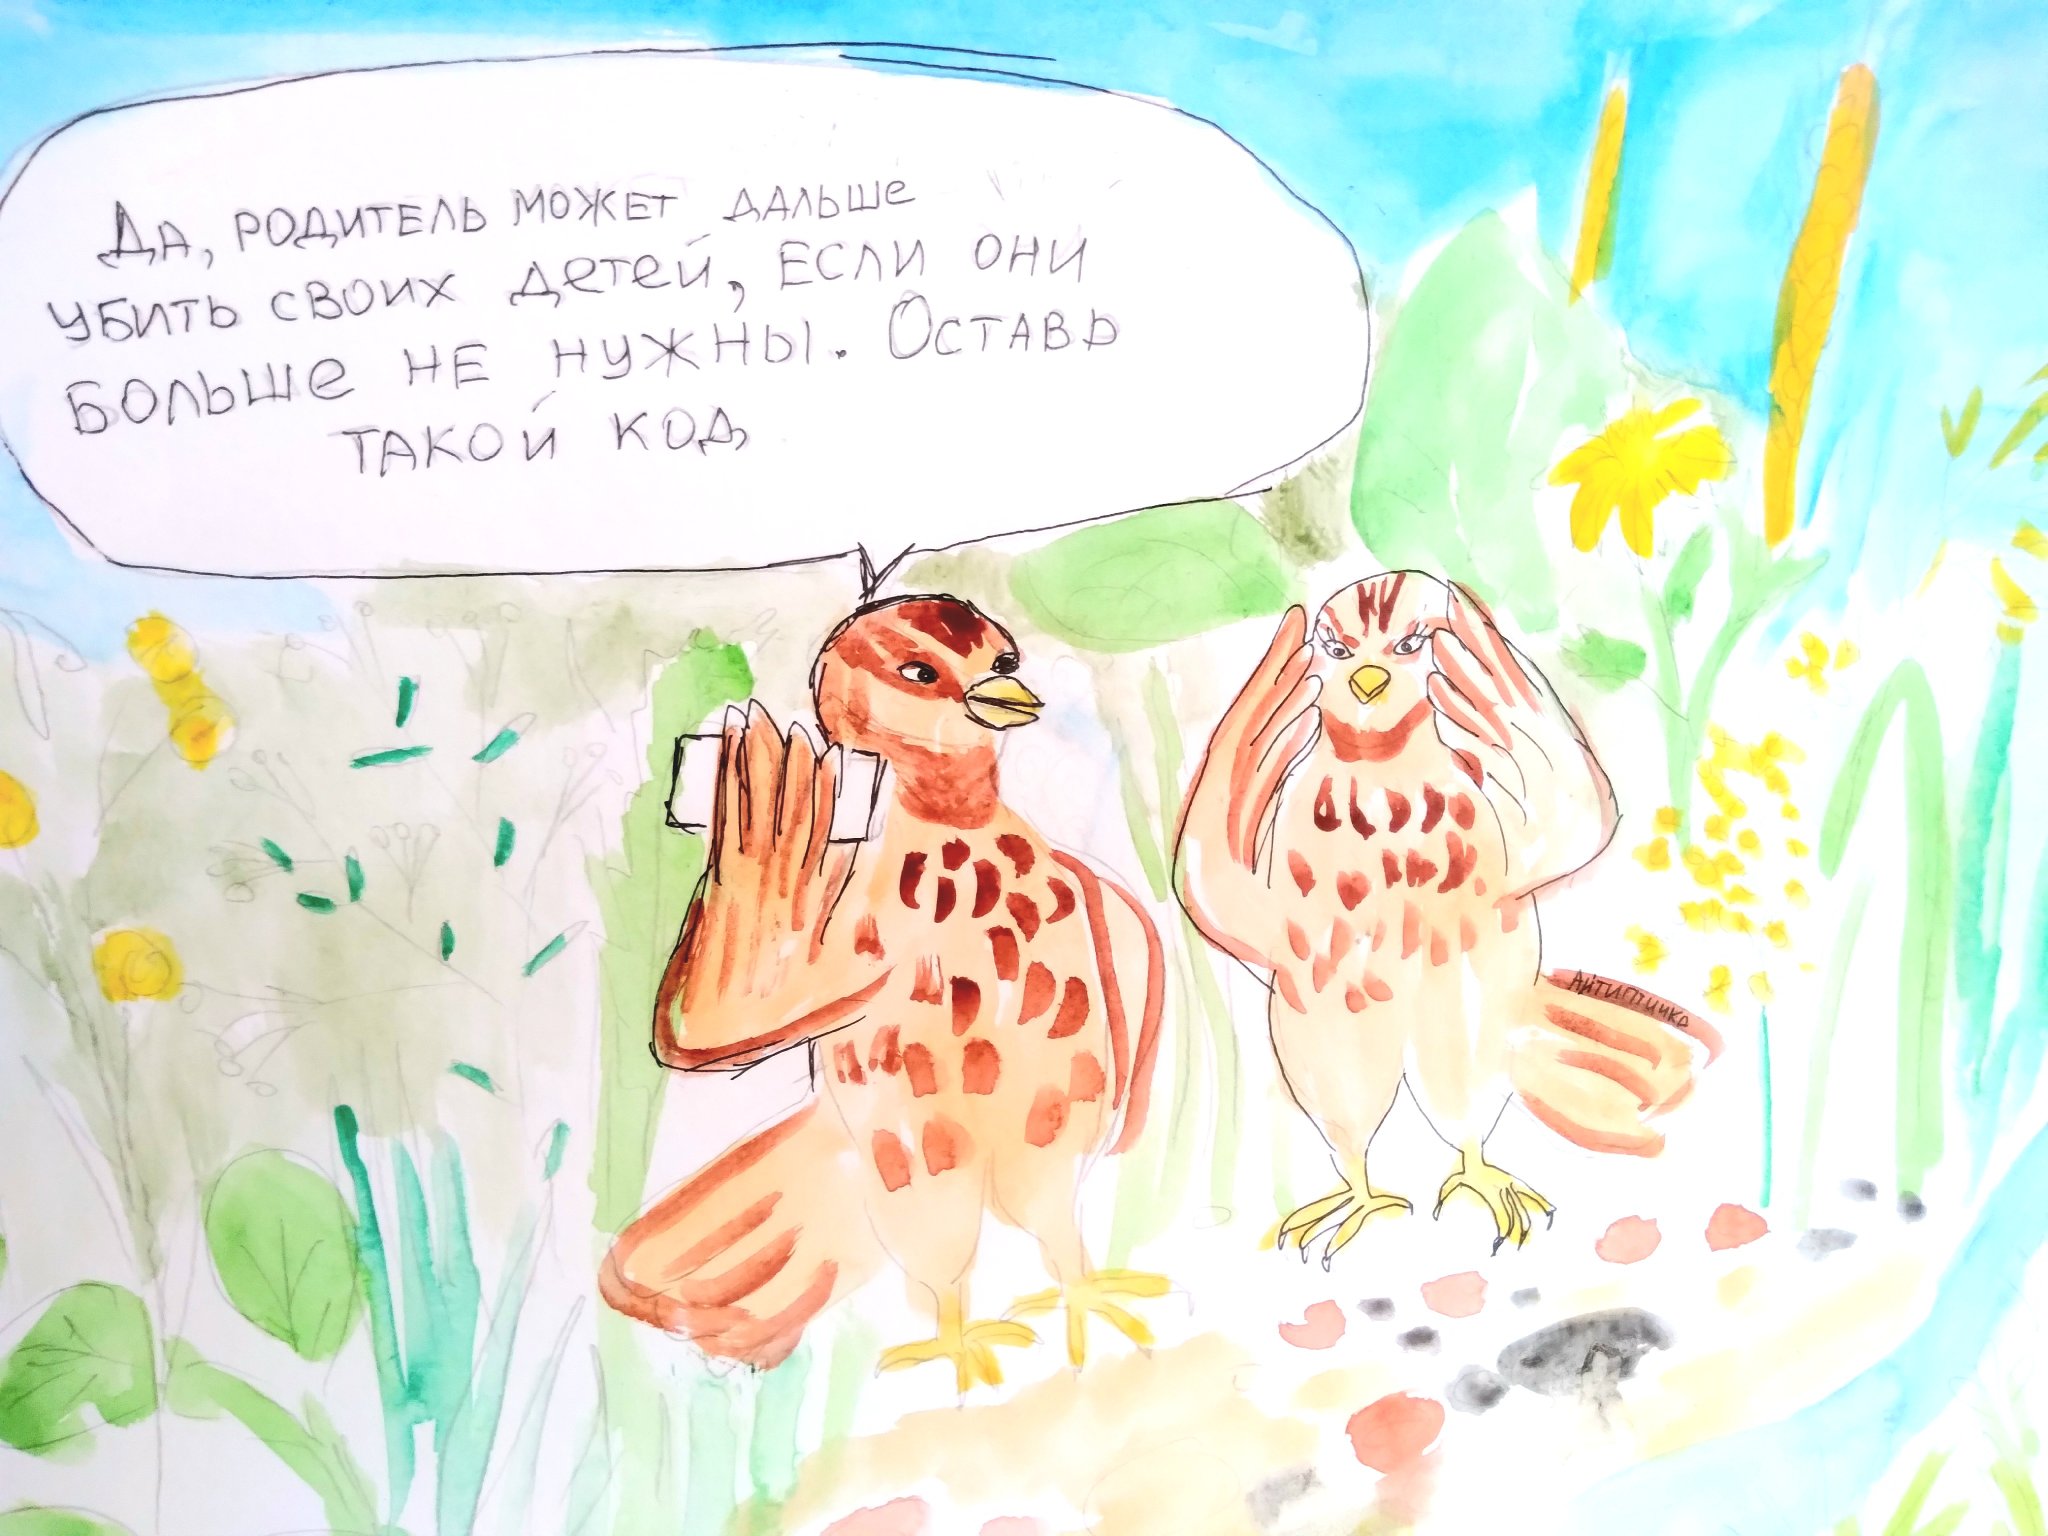 Да, родитель может дальше
убить своих детей, если они
больше не нужны. Оставь
такой код
Айтиптичка